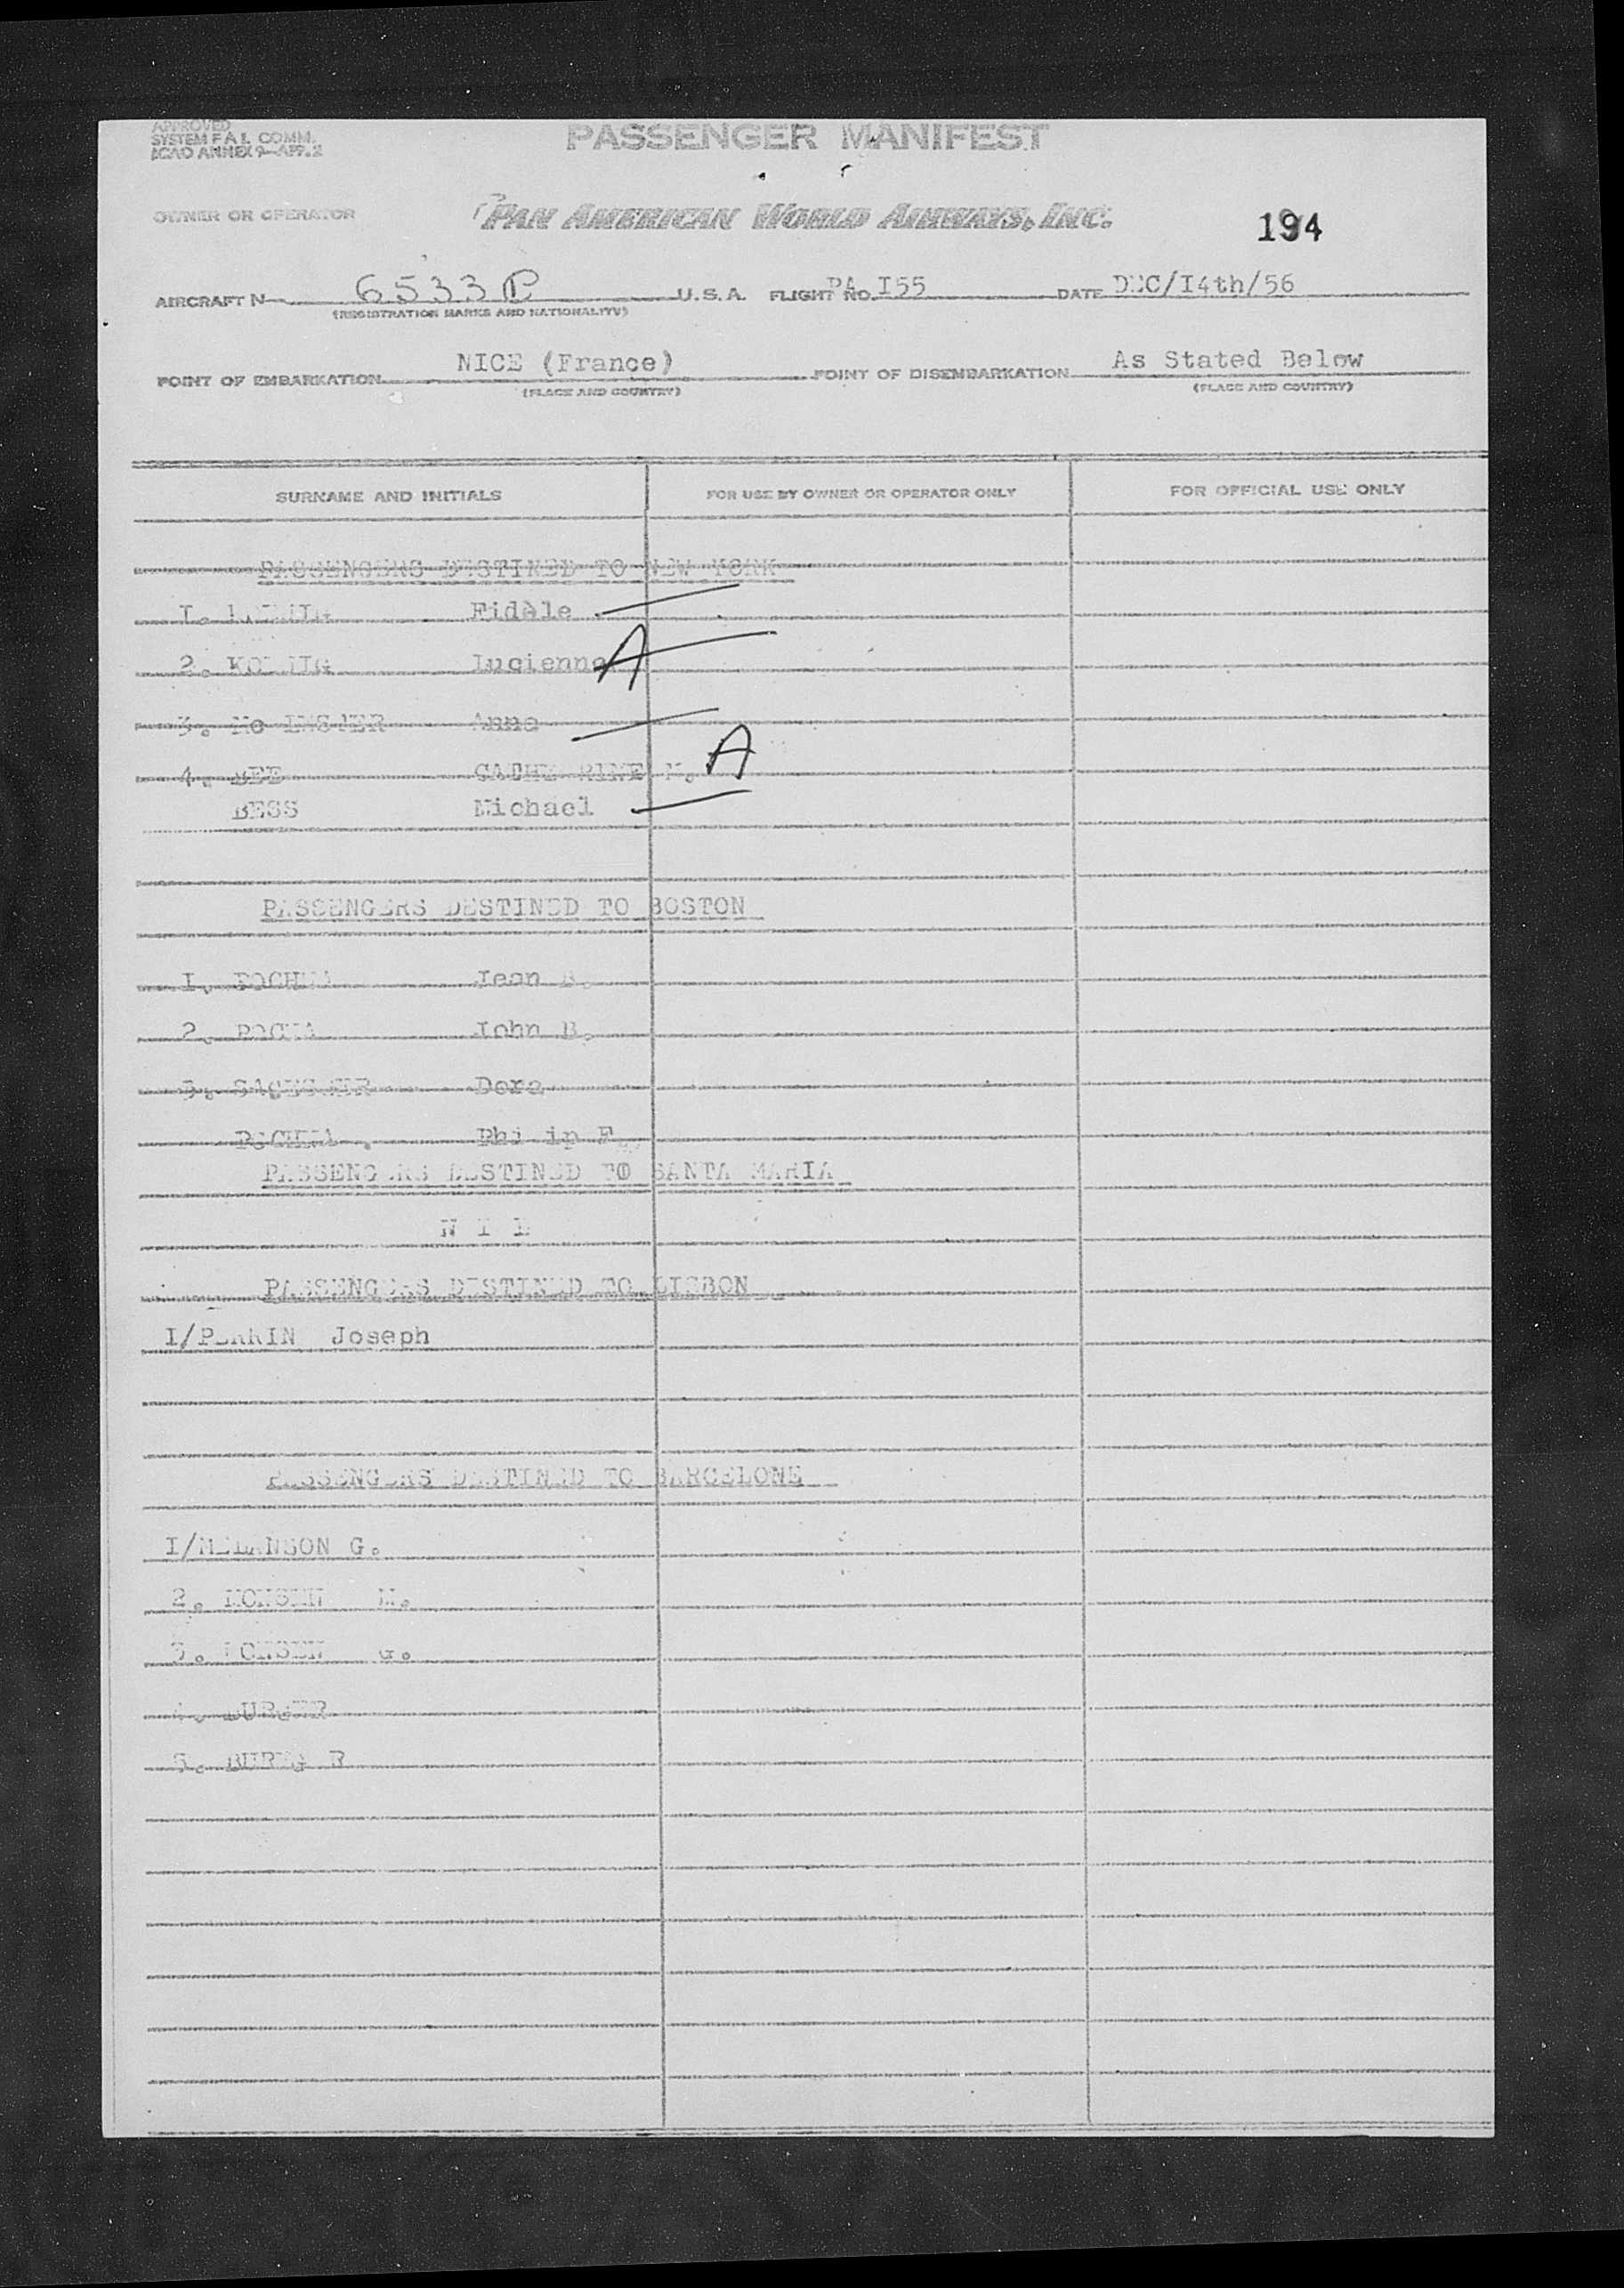 APPROVED
SYSTEM F A L COMM.
ICAO ANNEX 9—APP. 2
PASSENGER MANIFEST
OWNER OR OPERATOR
PAN AMERICAN WORLD AIRWAYS, INC.
194
AIRCRAFT N 6533P U.S.A. FLIGHT NO. PA I55 DATE DEC/I4th/56
(REGISTRATION MARKS AND NATIONALITY)
POINT OF EMBARKATION NICE (France) POINT OF DISEMBARKATION As Stated Below
(PLACE AND COUNTRY) (PLACE AND COUNTRY)
SURNAME AND INITIALS FOR USE BY OWNER OR OPERATOR ONLY FOR OFFICIAL USE ONLY
PASSENGERS DESTINED TO NEW YORK
I. Fidèle
2. Lucienne A
3. Anne
4. BEE CATHERINE A
BESS Michael
PASSENGERS DESTINED TO BOSTON
I. Jean B.
2. John B.
3. Dora
Philip F.
PASSENGERS DESTINED TO SANTA MARIA
N I L
PASSENGERS DESTINED TO LISBON
I/PERKIN Joseph
PASSENGERS DESTINED TO BARCELONE
I/MELANSON G.
2. M.
3. G.
4. BURGER
5. R